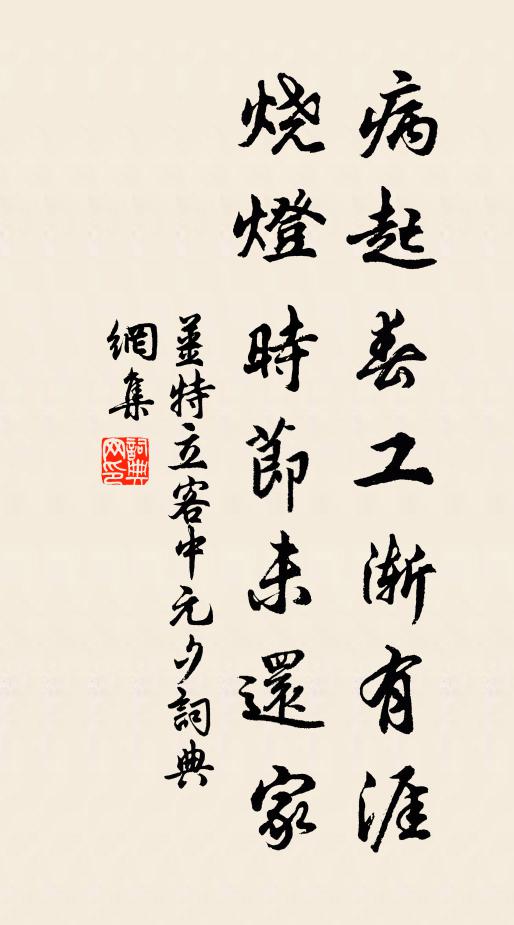 病起春工渐有涯
烧燈時節未還家
薑特立客中元夕詞典
網集
詞典网印